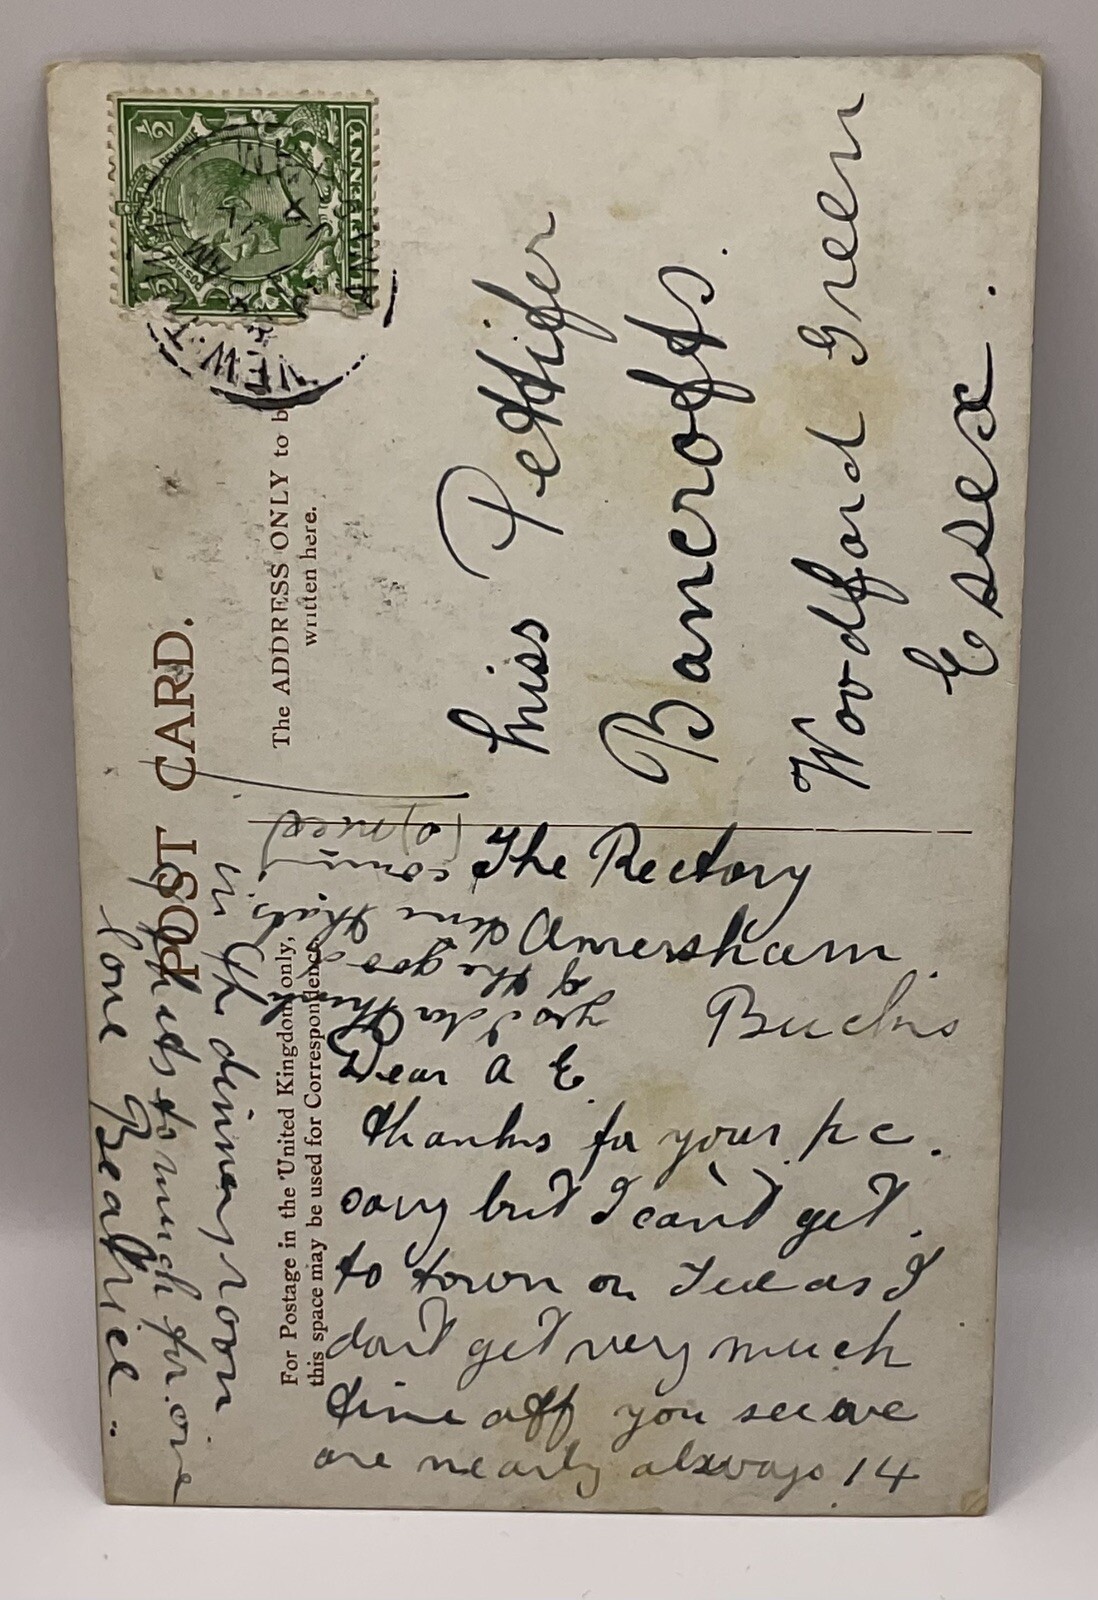 POST CARD.
For Postage in the United Kingdom only,
this space may be used for Correspondence
The ADDRESS ONLY to b
written here.
HALFPENNY
POSTAGE
REVENUE
½
Miss Pettifer
Bancrofts.
Woodford Green
Essex.
The Rectory
Amersham.
Bucks
Dear A E
thanks for your p c.
sorry but I can't get
to town on Tue as I
don't get very much
time off you see we
are nearly always 14
in the dinning room
&
so much for
love Beatrice.
of the good
time that's
coming